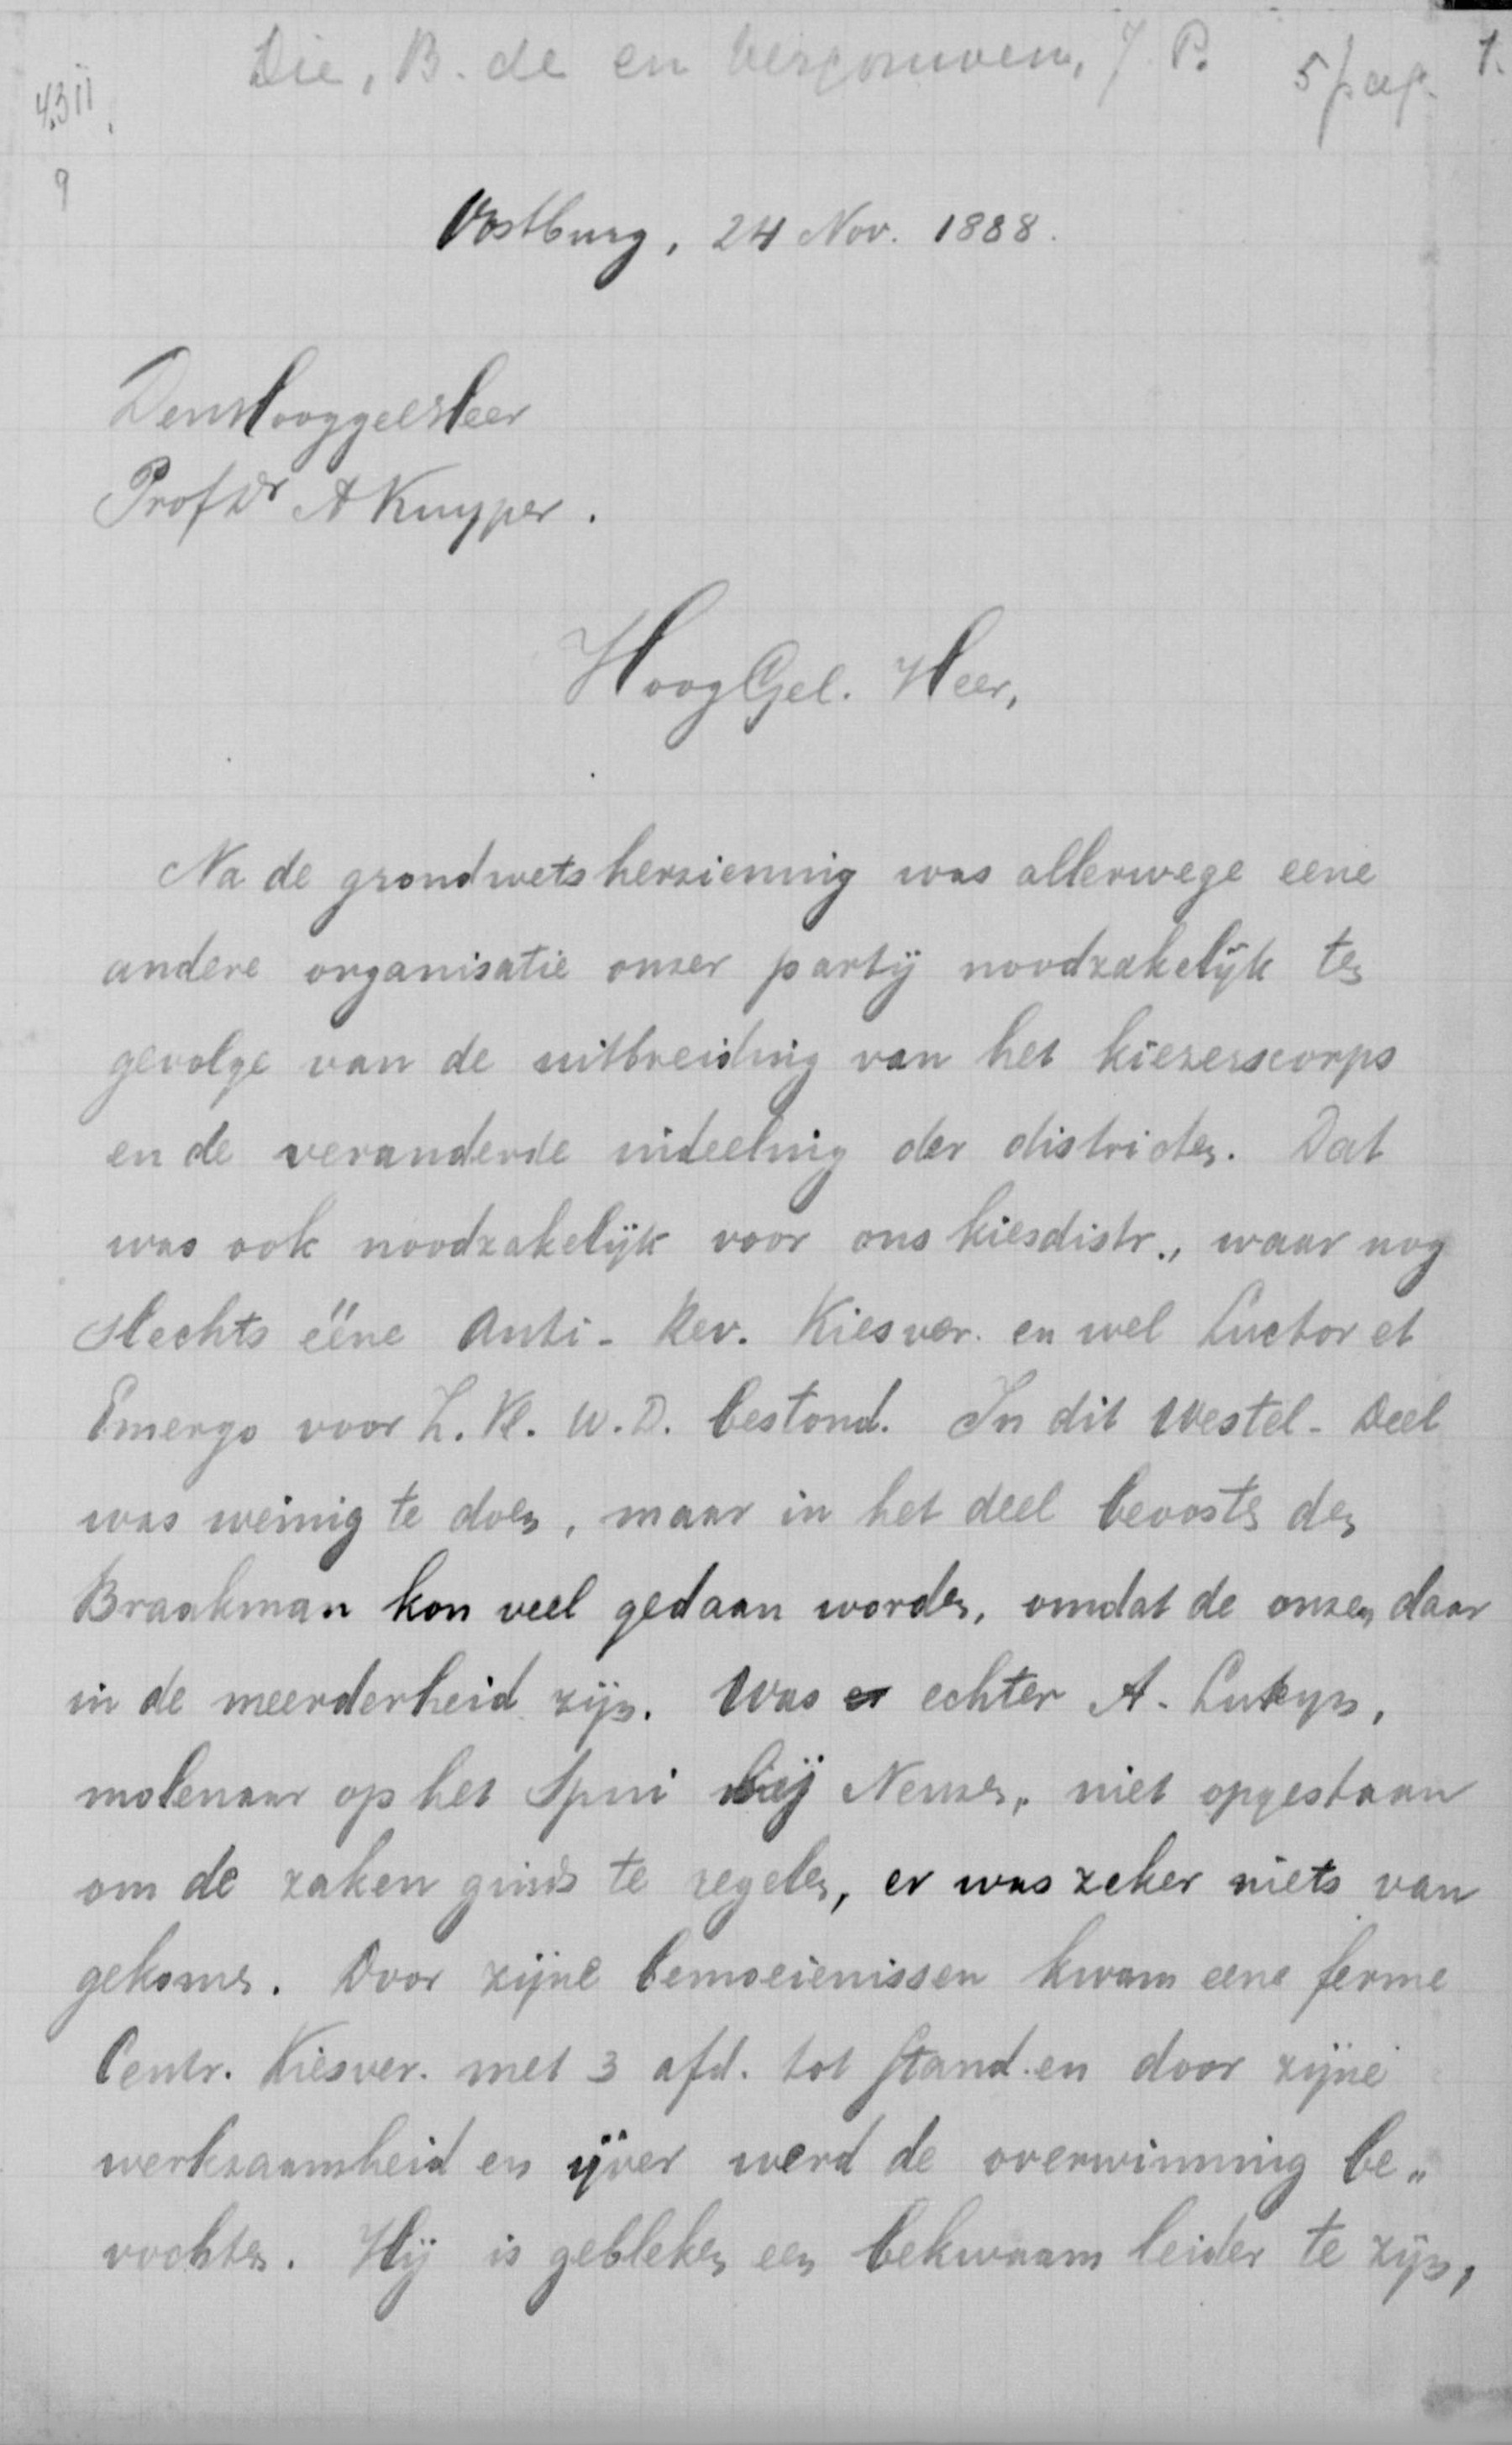 Die, B. de en Vergouwen, J. P. 5 pag. 1.
4311.
9
Oostburg, 24 Nov. 1888.
Den HooggelHeer
Prof Dr A Kuyper.
HoogGel. Heer,
Na de grondwetsherziening was allerwege eene
andere organisatie onzer partij noodzakelijk ten
gevolge van de uitbreiding van het kiezerscorps
en de veranderde indeeling der districten. Dat
was ook noodzakelijk voor ons kiesdistr., waar nog
slechts ééne Anti-Rev. Kiesver. en wel Luctor et
Emergo voor Z. Vl. W.D. bestond. In dit Westel-Deel
was weinig te doen, maar in het deel beoosten den
Braakman kon veel gedaan worden, omdat de onzen daar
in de meerderheid zijn. Was er echter A. Lukyn,
molenaar op het Spui bij Neuzen, niet opgestaan
om de zaken ginds te regelen, er was zeker niets van
gekomen. Door zijne bemoeienissen kwam eene ferme
Centr. Kiesver. met 3 afd. tot stand en door zijne
werkzaamheid en ijver werd de overwinning be„
vochten. Hij is gebleken een bekwaam leider te zijn,